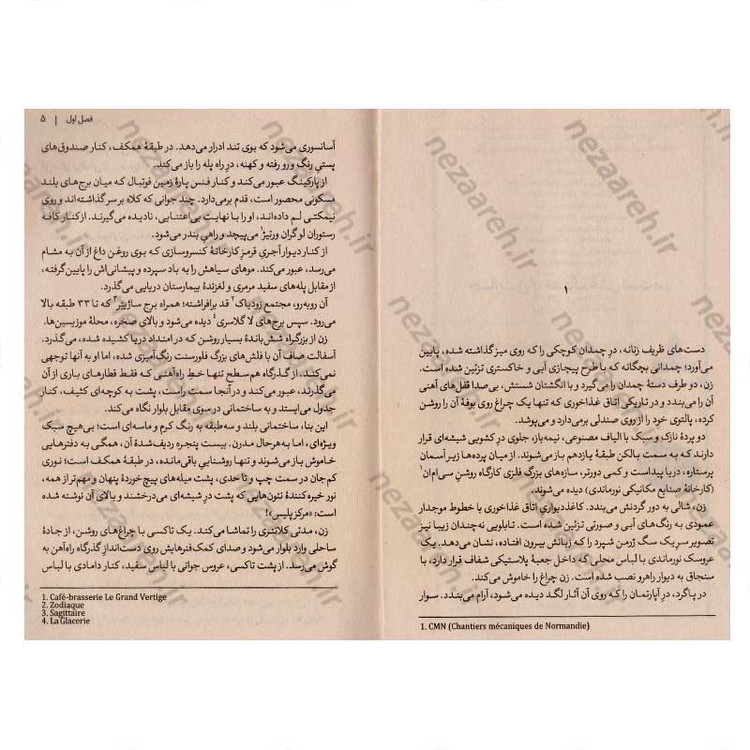 ۱
دست‌های ظریف زنانه، درِ چمدان کوچکی را که روی میز گذاشته شده، پایین
می‌آورد؛ چمدانی بچگانه که با طرح پیچازی آبی و خاکستری تزئین شده است.
زن، دو طرف دستهٔ چمدان را می‌گیرد و با انگشتان شستش، بی‌صدا قفل‌های آهنی
آن را می‌بندد و در تاریکی اتاق غذاخوری که تنها یک چراغ روی بوفهٔ آن را روشن
کرده، پالتوی خود را از روی صندلی برمی‌دارد و می‌پوشد.
دو پردهٔ نازک و سبک با الیاف مصنوعی، نیمه‌باز، جلوی درِ کشویی شیشه‌ای قرار
دارند که به سمت بالکن طبقهٔ یازدهم باز می‌شوند. از میان پرده‌ها زیر آسمان
پرستاره، دریا پیداست و کمی دورتر، سازه‌های بزرگ فلزی کارگاه روشنِ سی‌اِم‌اِن۱
(کارخانهٔ صنایع مکانیکی نورماندی) دیده می‌شوند.
زن، شالی به دور گردنش می‌بندد. کاغذدیواریِ اتاق غذاخوری با خطوط موجدار
عمودی به رنگ‌های آبی و صورتی تزئین شده است. تابلویی نه‌چندان زیبا نیز
تصویر سرِ یک سگ ژرمن شپرد را که زبانش بیرون افتاده، نشان می‌دهد. یک
عروسک نورماندی با لباس محلی که داخل جعبهٔ پلاستیکی شفاف قرار دارد، با
سنجاق به دیوار راهرو نصب شده است. زن چراغ را خاموش می‌کند.
در پاگرد، درِ آپارتمان را که روی آن آثار لگد دیده می‌شود، آرام می‌بندد. سوار
1. CMN (Chantiers mécaniques de Normandie)
فصل اول | ۵
آسانسوری می‌شود که بوی تند ادرار می‌دهد. در طبقهٔ همکف، کنار صندوق‌های
پستیِ رنگ و رو رفته و کهنه، درِ راه پله را باز می‌کند.
از پارکینگ عبور می‌کند و کنار فنس پارهٔ زمین فوتبال که میان برج‌های بلند
مسکونی محصور است، قدم برمی‌دارد. چند جوانی که کلاه بر سر گذاشته‌اند و روی
نیمکتی لم داده‌اند، او را با نهایت بی‌اعتنایی، نادیده می‌گیرند. از کنار کافه
رستوران لو گران ورتیژ۱ می‌پیچد و راهیِ بندر می‌شود.
از کنار دیوار آجریِ قرمز کارخانهٔ کنسروسازی که بوی روغن داغ از آن به مشام
می‌رسد، عبور می‌کند. موهای سیاهش را به باد سپرده و پیشانی‌اش را پایین گرفته،
از مقابل پله‌های سفید مرمری و لغزندهٔ بیمارستان دریایی می‌گذرد.
آن روبه‌رو، مجتمع زودیاک۲ قد برافراشته؛ همراه برج ساژیتیر۳ که تا ۳۳ طبقه بالا
می‌رود. سپس برج‌های لا گلاسری۴ دیده می‌شود و بالای صخره، محلهٔ موزیسین‌ها.
زن از بزرگراه شش‌باندهٔ بسیار روشن که در امتداد دریا کشیده شده، می‌گذرد.
آسفالت صاف آن با فلش‌های بزرگ فلورسنت رنگ‌آمیزی شده، اما او به آنها توجهی
نمی‌کند، از گذرگاه هم‌سطح تنها خط راه‌آهنی که فقط قطارهای باری از آن
می‌گذرند، عبور می‌کند و در آنجا سمت راست، پشت به کوچه‌ای کثیف، کنار
جدول می‌ایستد و به ساختمانی در سوی مقابل بلوار نگاه می‌کند.
این بنا، ساختمانی بلند و سه‌طبقه به رنگ کرم و ماسه‌ای است؛ بی‌هیچ سبک
ویژه‌ای، اما به‌هرحال مدرن. بیست پنجره ردیف‌شدهٔ آن، همگی به دفترهایی
خاموش باز می‌شوند و تنها روشناییِ باقی‌مانده، در طبقهٔ همکف است؛ نوری
کم‌جان در سمت چپ و تا حدی، پشت میله‌های پیچ‌خوردهٔ پنهان و مهم‌تر از همه،
نور خیره‌کنندهٔ نئون‌هایی که پشت درِ شیشه‌ای می‌درخشند و بالای آن نوشته شده
است: «مرکز پلیس»!
زن، مدتی کلانتری را تماشا می‌کند. یک تاکسی با چراغ‌های روشن، از جادهٔ
ساحلی وارد بلوار می‌شود و صدای کمک‌فنرهایش روی دست‌اندازِ گذرگاه راه‌آهن به
گوش می‌رسد. از پشت تاکسی، عروس جوانی با لباس سفید، کنار دامادی با لباس
1. Café-brasserie Le Grand Vertige
2. Zodiaque
3. Sagittaire
4. La Glacerie
nezaareh.ir